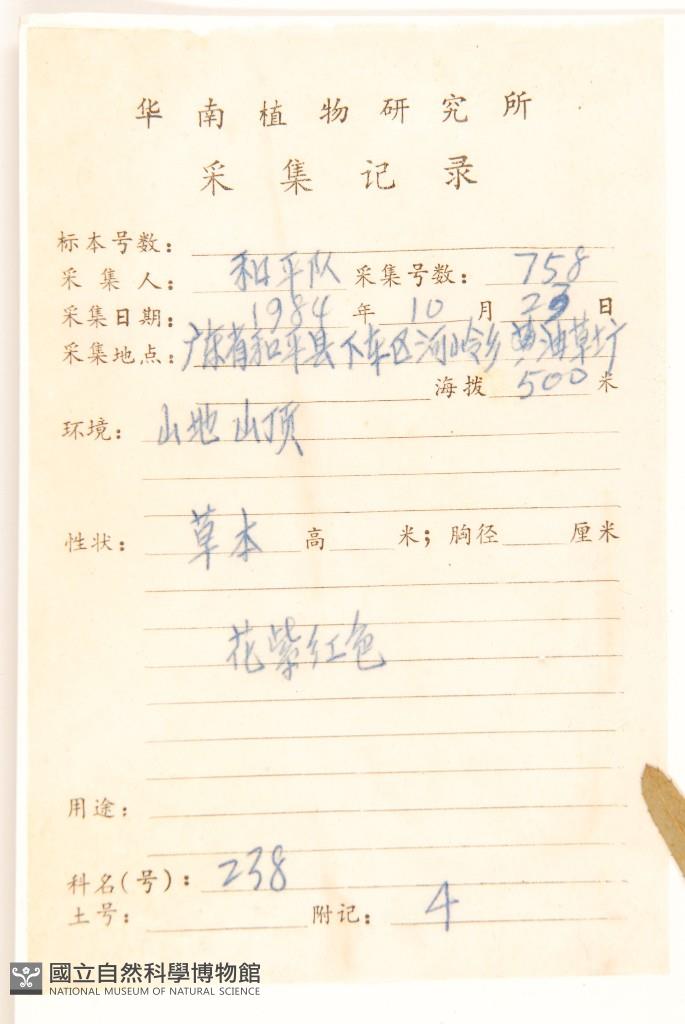 华南植物研究所
采集记录
标本号数：
采集人： 和平队 采集号数： 758
采集日期： 1984 年 10 月 23 日
采集地点： 广东省和平县下车区河岭乡黄油草圹
海拨 500 米
环境： 山地山顶
性状： 草本 高 米；胸径 厘米
花紫红色
用途：
科名(号)： 238
土号： 附记： 4
國立自然科學博物館
NATIONAL MUSEUM OF NATURAL SCIENCE